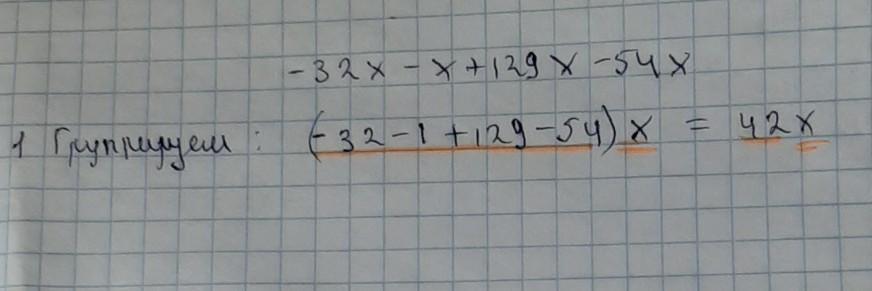 -32x - x + 129x - 54x
1 Группируем: (-32 - 1 + 129 - 54)x = 42x